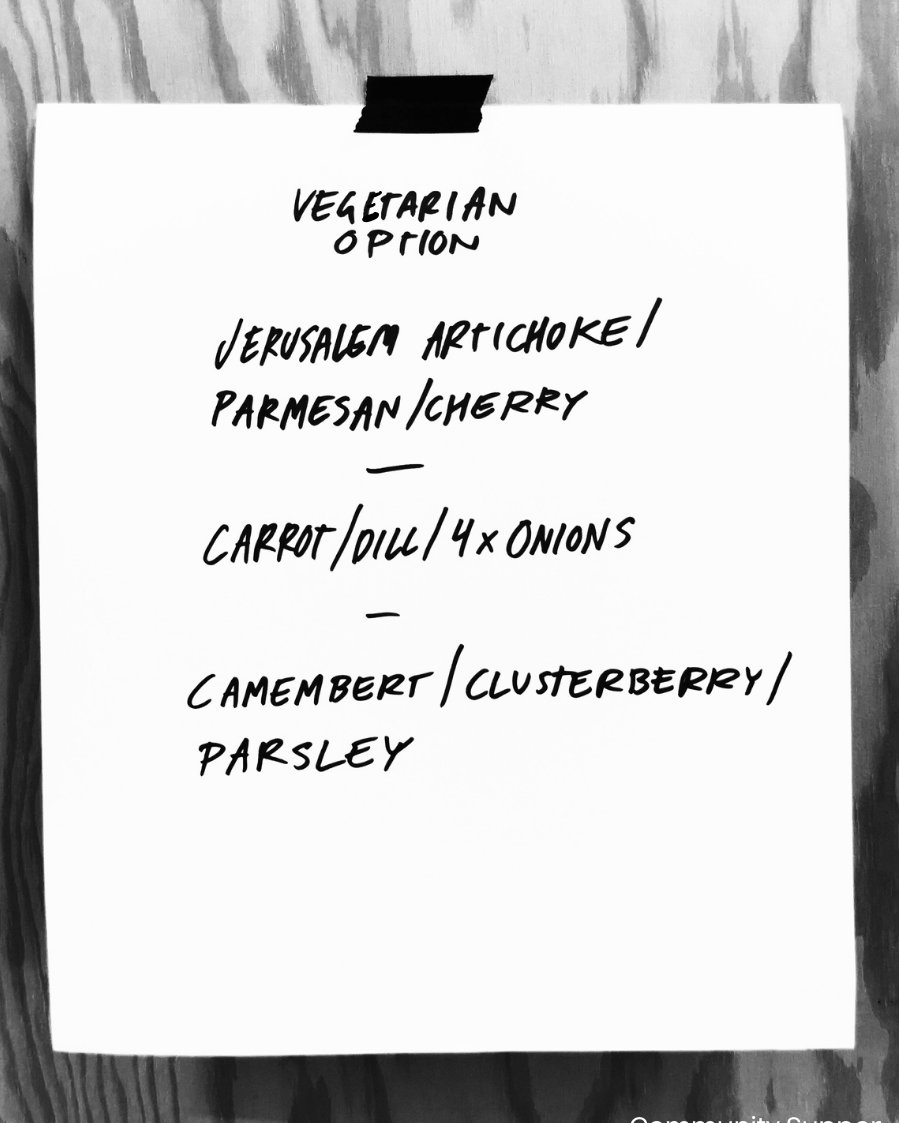 VEGETARIAN
OPTION
JERUSALEM ARTICHOKE/
PARMESAN/CHERRY
—
CARROT/DILL/4x ONIONS
—
CAMEMBERT/CLUSTERBERRY/
PARSLEY
Community Supper